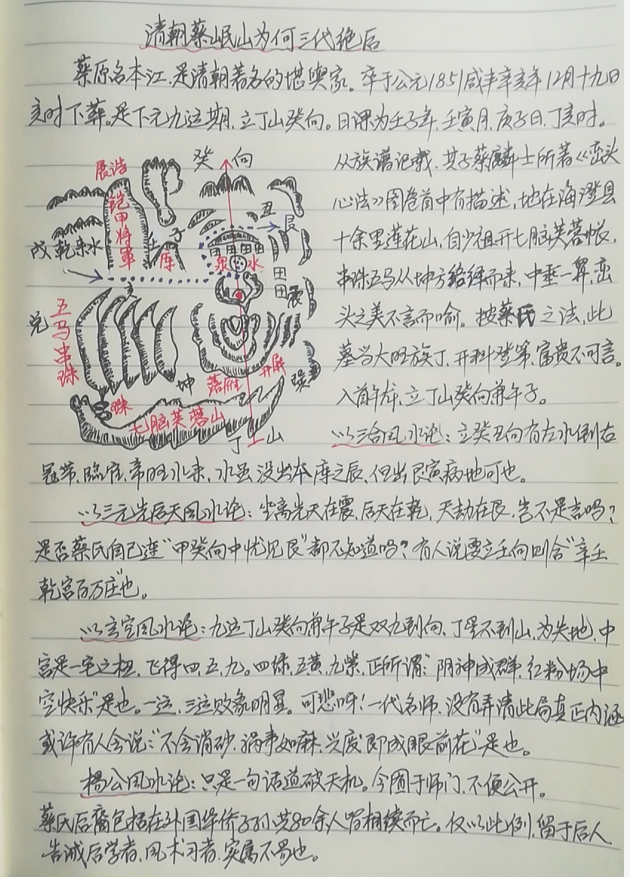 清朝蔡岷山为何三代绝后
蔡原名本江，是清朝著名的堪舆家。卒于公元1851咸丰辛亥年12月十九日
亥时下葬。是下元九运期，立丁山癸向。日课为壬子年，壬寅月，庚子日，丁亥时。
从族谱记载，其子蔡麟士所著《峦头
心法》图卷首中有描述，地在海澄县
十余里莲花山，自少祖开七脑芙蓉帐，
串珠五马从坤方给绎而来，中垂一算，峦
头之美不言而喻。按蔡氏之法，此
墓当大旺族丁，开科登第，富贵不可言。
入首 龙，立丁山癸向兼午子。
以三合风水论：立癸丑向有左水倒右
冠带，临官，帝旺水来，水虽没出本库之辰，但出艮寅病地可也。
以三元先后天风水论：坐离先天在震，后天在乾，天劫在艮，岂不是吉吗？
是否蔡氏自己连“甲癸向中忧见艮”都不知道吗？有人说要立壬向则合“辛壬
乾宫百万庄”也。
以玄空风水论：九运丁山癸向兼午子是双九到向，丁星不到山，为失地，中
宫是一宅之极，飞得四、五、九。四绿，五黄，九紫，正所谓：“阴神成群，红粉场中
空快乐”是也。一运，三运败象明显。可悲呀！一代名师，没有弄清此局真正内涵
或许有人会说：“不会消砂，祸事如麻，兴废即成眼前花”是也。
杨公风水论：只是一句话道破天机。今囿于师门，不便公开。
蔡氏后裔包括在外国华侨子孙共80余人 相续而亡。仅以此例，留于后人
告诫后学者，风术习者，实属不易也。
癸 向
展诰
铠甲将军
丑
艮
子
壬
库
戌乾来水
泉水
田
田
田
震
兑
五马串珠
珠
坤
落雁
开屏
巽
七脑芙蓉山
丁 山